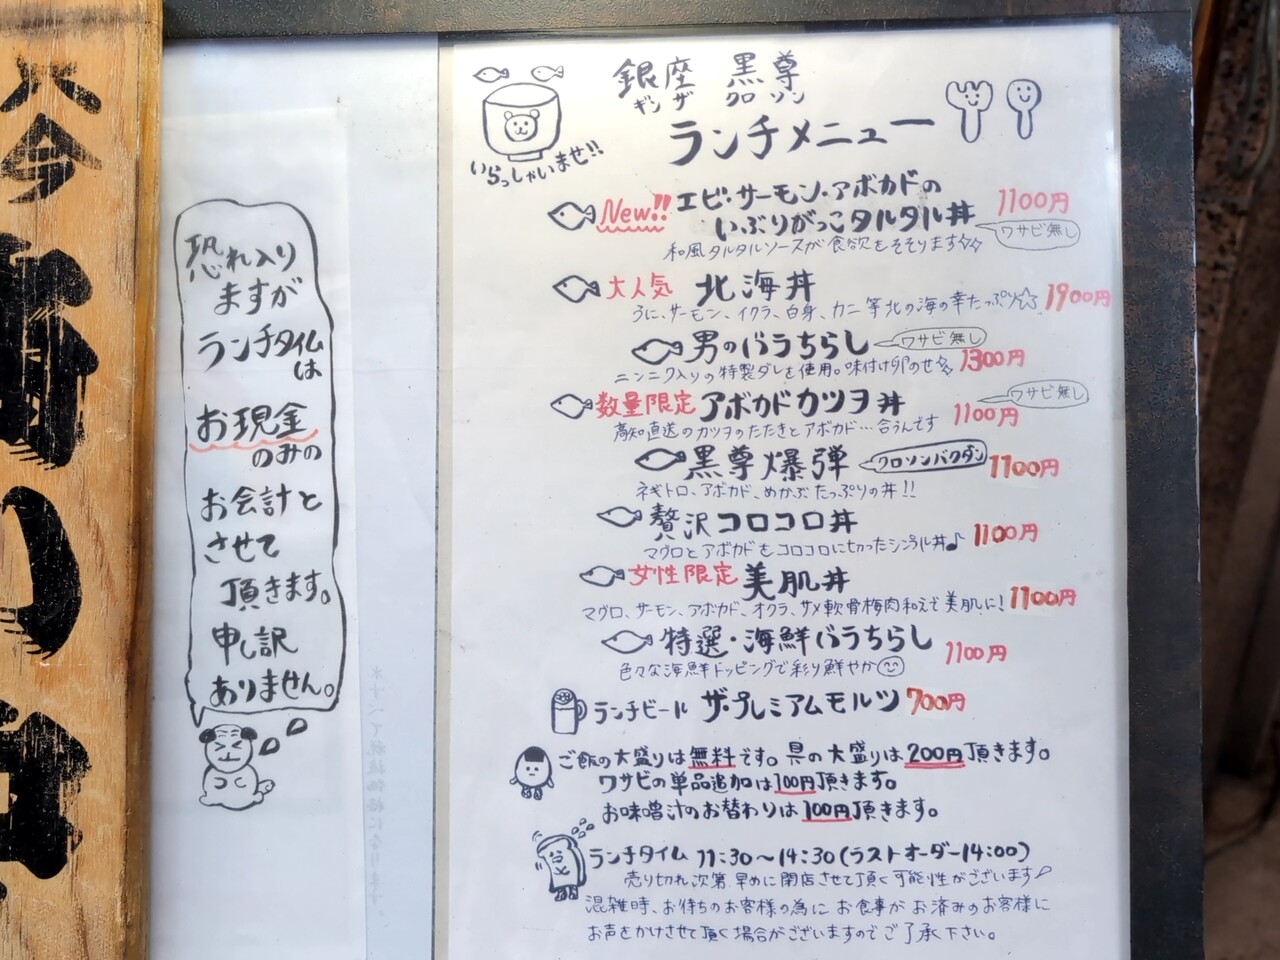 今
恐れ入り
ますが
ランチタイム
は
お現金
のみの
お会計と
させて
頂きます。
申し訳
ありません。
銀座 黒尊
ギンザ クロソン
ランチメニュー
いらっしゃいませ!!
New!! エビ・サーモン・アボカドの
いぶりがっこタルタル丼 1100円
ワサビ無し
和風タルタルソースが食欲をそそります☆☆
大人気 北海丼
うに、サーモン、イクラ、白身、カニ等北の海の幸たっぷり☆ 1900円
男のバラちらし ワサビ無し
ニンニク入りの特製ダレを使用。味付け卵のせ☆ 1300円
数量限定 アボカドカツヲ丼 1100円 ワサビ無し
高知直送のカツヲのたたきとアボカド…合うんです
黒尊爆弾 クロソンバクダン 1100円
ネギトロ、アボカド、めかぶたっぷりの丼!!
贅沢コロコロ丼 1100円
マグロとアボカドをコロコロに切ったシンプル丼♪
女性限定 美肌丼
マグロ、サーモン、アボカド、オクラ、サメ軟骨梅肉和えで美肌に! 1100円
特選・海鮮バラちらし 1100円
色々な海鮮トッピングで彩り鮮やか
ランチビール ザ・プレミアムモルツ 700円
ご飯の大盛りは無料です。具の大盛りは200円頂きます。
ワサビの単品追加は100円頂きます。
お味噌汁のお替わりは100円頂きます。
ランチタイム 11:30～14:30(ラストオーダー14:00)
売り切れ次第、早めに閉店させて頂く可能性がございます♪
混雑時、お待ちのお客様の為にお食事がお済みのお客様に
お声をかけさせて頂く場合がございますのでご了承下さい。